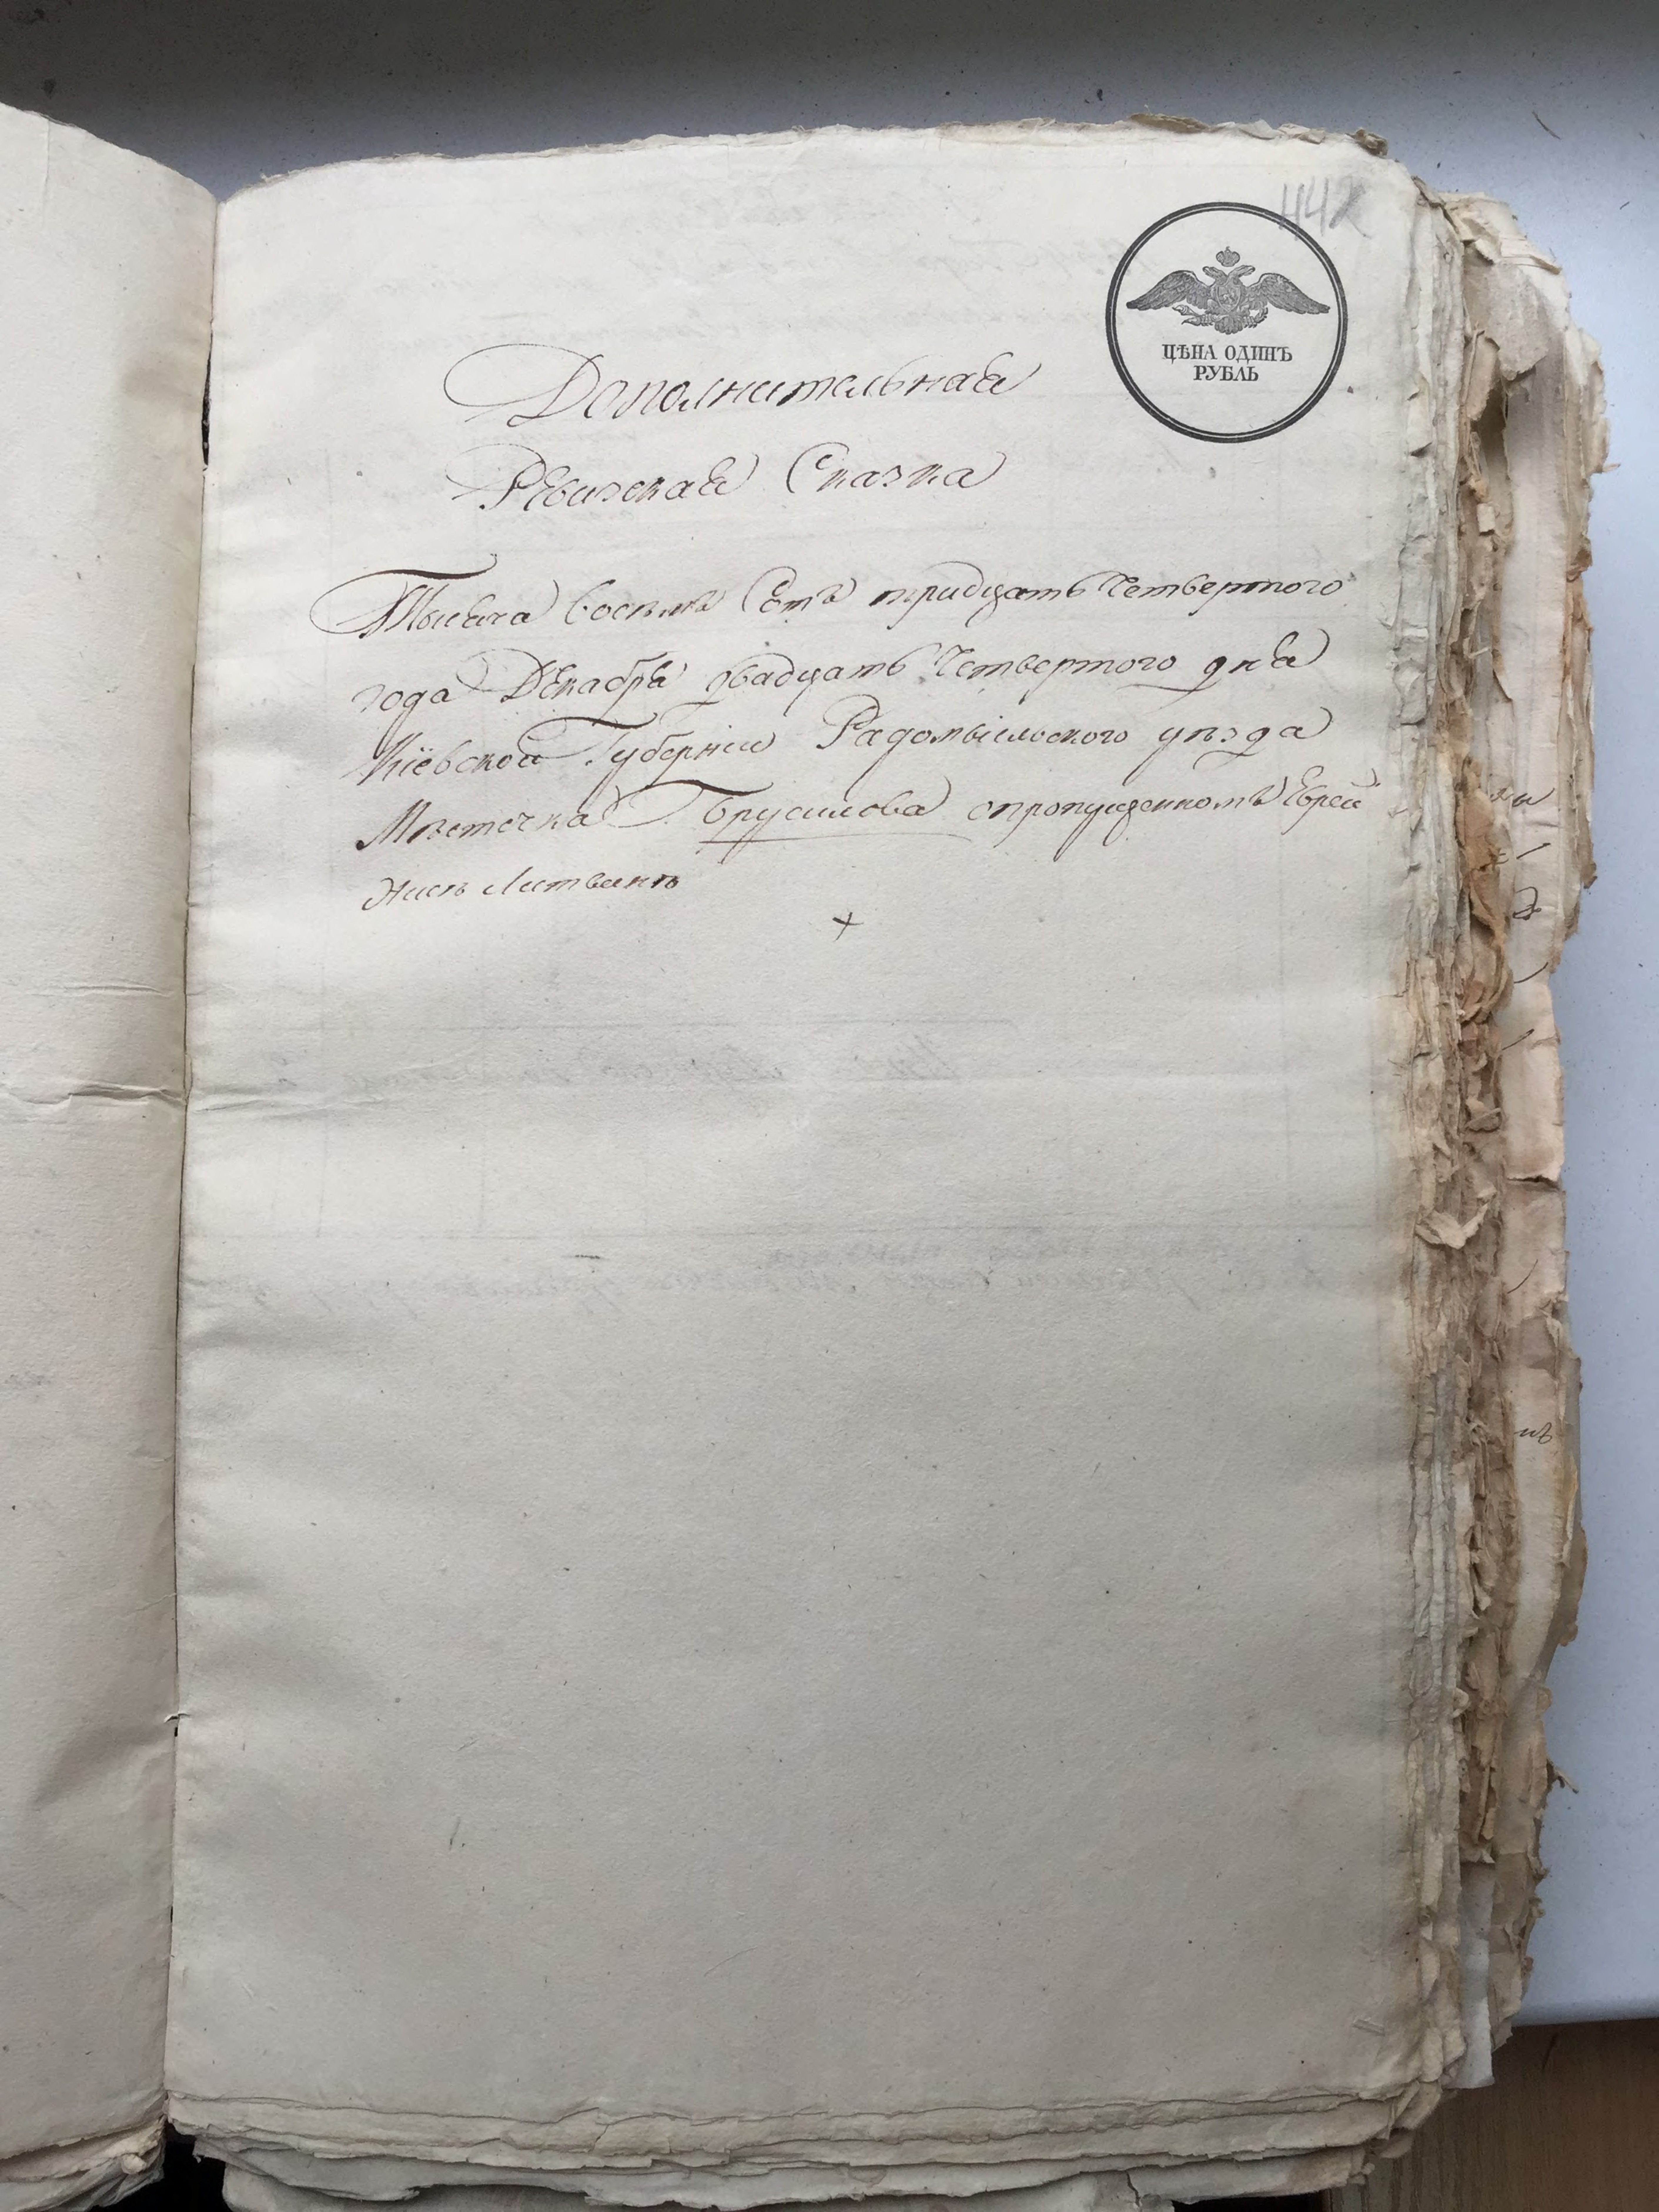 442
ЦѢНА ОДИНЪ
РУБЛЬ
Дополнительная
Ревизская Сказка
Тысяча восемъ Сотъ тридцать Четвертого
года Декабря двадцать Четвертого дня
Кіевской Губерніи Радомысльского уѣзда
Мѣстечка Брусилова опропущенномъ Еврей
Литвакѣ